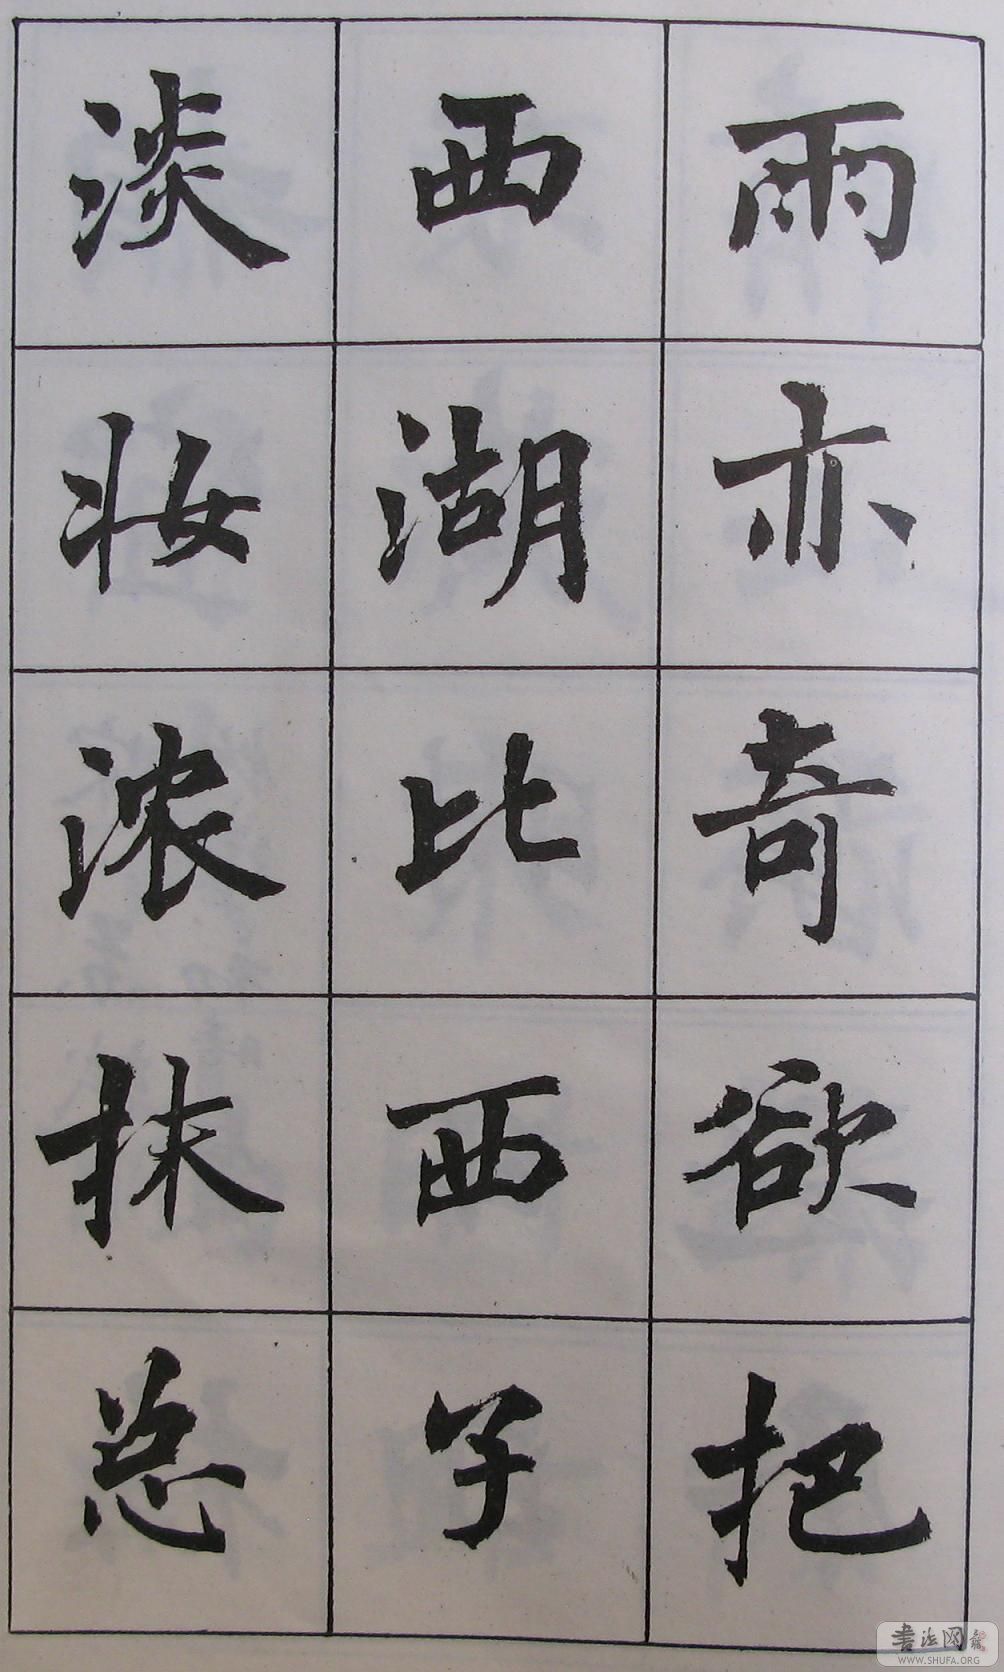 雨亦奇欲把
西湖比西子
淡妆浓抹总
书法网
WWW.SHUFA.ORG